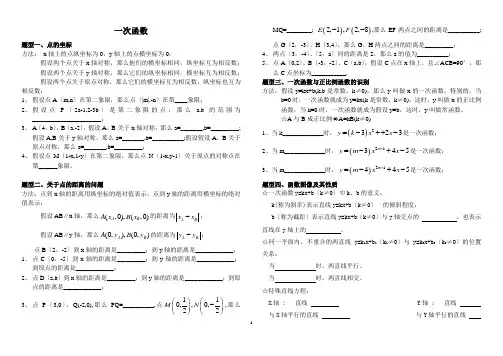 一次函数
题型一、点的坐标
方法： x轴上的点纵坐标为0，y轴上的点横坐标为0；
假设两个点关于x轴对称，那么他们的横坐标相同，纵坐标互为相反数；
假设两个点关于y轴对称，那么它们的纵坐标相同，横坐标互为相反数；
假设两个点关于原点对称，那么它们的横坐标互为相反数，纵坐标也互为
相反数；
1、 假设点A（m,n）在第二象限，那么点（|m|,-n）在____象限；
2、 假设点P（2a-1,2-3b）是第二象限的点，那么a,b的范围为
______________________;
3、 A（4，b）,B（a,-2）,假设A，B关于x轴对称，那么a=_______,b=_________;
假设A,B关于y轴对称，那么a=_______,b=__________;假设假设A，B关于
原点对称，那么a=_______,b=_________;
4、 假设点M（1-x,1-y）在第二象限，那么点N（1-x,y-1）关于原点的对称点在
第______象限。
题型二、关于点的距离的问题
方法：点到x轴的距离用纵坐标的绝对值表示，点到y轴的距离用横坐标的绝对
值表示；
假设AB∥x轴，那么A(x_A,0),B(x_B,0)的距离为|x_A−x_B|；
假设AB∥y轴，那么A(0,y_A),B(0,y_B)的距离为|y_A−y_B|；
点B（2，-2）到x轴的距离是_________，到y轴的距离是____________;
1、 点C（0，-5）到x轴的距离是_________，到y轴的距离是____________,
到原点的距离是____________;
2、 点D（a,b）到x轴的距离是_________，到y轴的距离是____________,到原
点的距离是____________;
3、 点P（3,0），Q(-2,0),那么PQ=__________,点M(0,1/2),N(0,−1/2),那么
MQ=________; E(2,−1),F(2,−8),那么EF两点之间的距离是__________;
点G（2，-3）、H（3,4），那么G、H两点之间的距离是_________；
4、 两点（3，-4）、（5，a）间的距离是2，那么a的值为__________;
5、 点A（0,2）、B（-3，-2）、C（a,b），假设C点在x轴上，且∠ACB=90°，那
么C点坐标为___________.
题型三、一次函数与正比例函数的识别
方法：假设y=kx+b(k,b是常数，k≠0)，那么y叫做x的一次函数，特别的，当
b=0时，一次函数就成为y=kx(k是常数，k≠0)，这时，y叫做x的正比例
函数，当k=0时，一次函数就成为假设y=b，这时，y叫做常函数。
☆A与B成正比例⇔A=kB(k≠0)
1、当k____________时，y=(k−3)x²+2x−3是一次函数；
2、当m____________时，y=(m−3)x^(2m+1)+4x−5是一次函数；
3、当m____________时，y=(m−4)x^(2m+1)+4x−5是一次函数；
题型四、函数图像及其性质
☆一次函数y=kx+b（k≠0）中k、b的意义：
k(称为斜率)表示直线y=kx+b（k≠0） 的倾斜程度；
b（称为截距）表示直线y=kx+b（k≠0）与y轴交点的 ，也表示
直线在y轴上的 。
☆同一平面内，不重合的两直线 y=k₁x+b₁（k₁≠0）与 y=k₂x+b₂（k₂≠0）的位置
关系：
当 时，两直线平行。
当 时，两直线相交。
☆特殊直线方程：
X轴 : 直线 Y轴 : 直线
与X轴平行的直线 与Y轴平行的直线
1